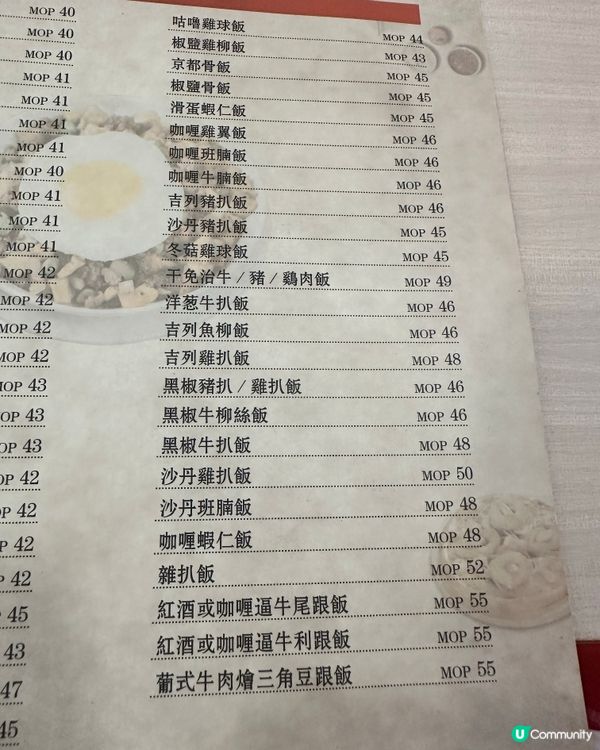 MOP 40
MOP 40
MOP 40
MOP 41
MOP 41
MOP 41
MOP 41
MOP 40
MOP 41
MOP 41
MOP 41
MOP 42
MOP 42
MOP 42
MOP 43
MOP 43
MOP 43
OP 42
OP 42
P 42
P 42
P 45
43
47
45
咕嚕雞球飯 MOP 44
椒鹽雞柳飯 MOP 43
京都骨飯 MOP 45
椒鹽骨飯 MOP 45
滑蛋蝦仁飯 MOP 45
咖喱雞翼飯 MOP 46
咖喱班腩飯 MOP 46
咖喱牛腩飯 MOP 46
吉列豬扒飯 MOP 46
沙丹豬扒飯 MOP 45
冬菇雞球飯 MOP 45
干免治牛/豬/鷄肉飯 MOP 49
洋葱牛扒飯 MOP 46
吉列魚柳飯 MOP 46
吉列雞扒飯 MOP 48
黑椒豬扒/雞扒飯 MOP 46
黑椒牛柳絲飯 MOP 46
黑椒牛扒飯 MOP 48
沙丹雞扒飯 MOP 50
沙丹班腩飯 MOP 48
咖喱蝦仁飯 MOP 48
雜扒飯 MOP 52
紅酒或咖喱逼牛尾跟飯 MOP 55
紅酒或咖喱逼牛利跟飯 MOP 55
葡式牛肉燴三角豆跟飯 MOP 55
U Community